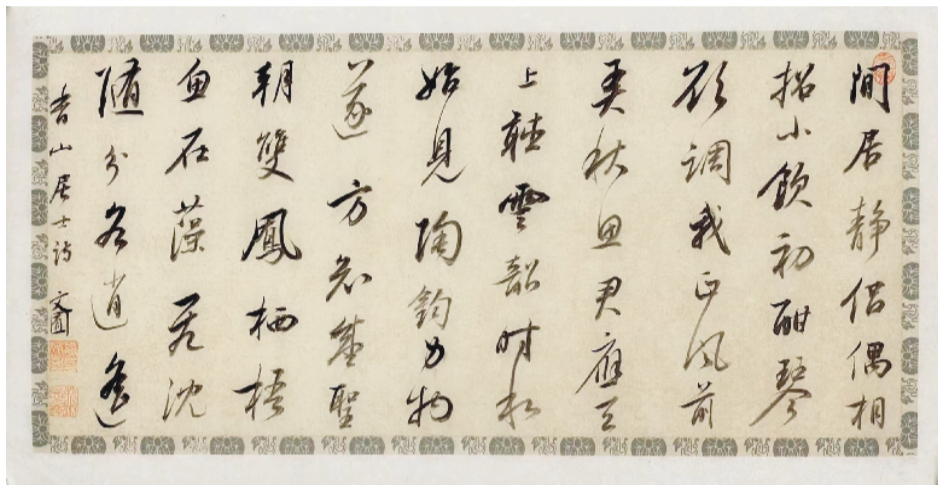 閒居静侶偶相
招小飲初酣琴
欲調我正風前
弄秋思君應天
上聽雲韶時和
始見陶鈞力物
遂方知盛聖
朝雙鳳栖梧
魚在藻飛沈
隨分各逍遙
香山居士詩